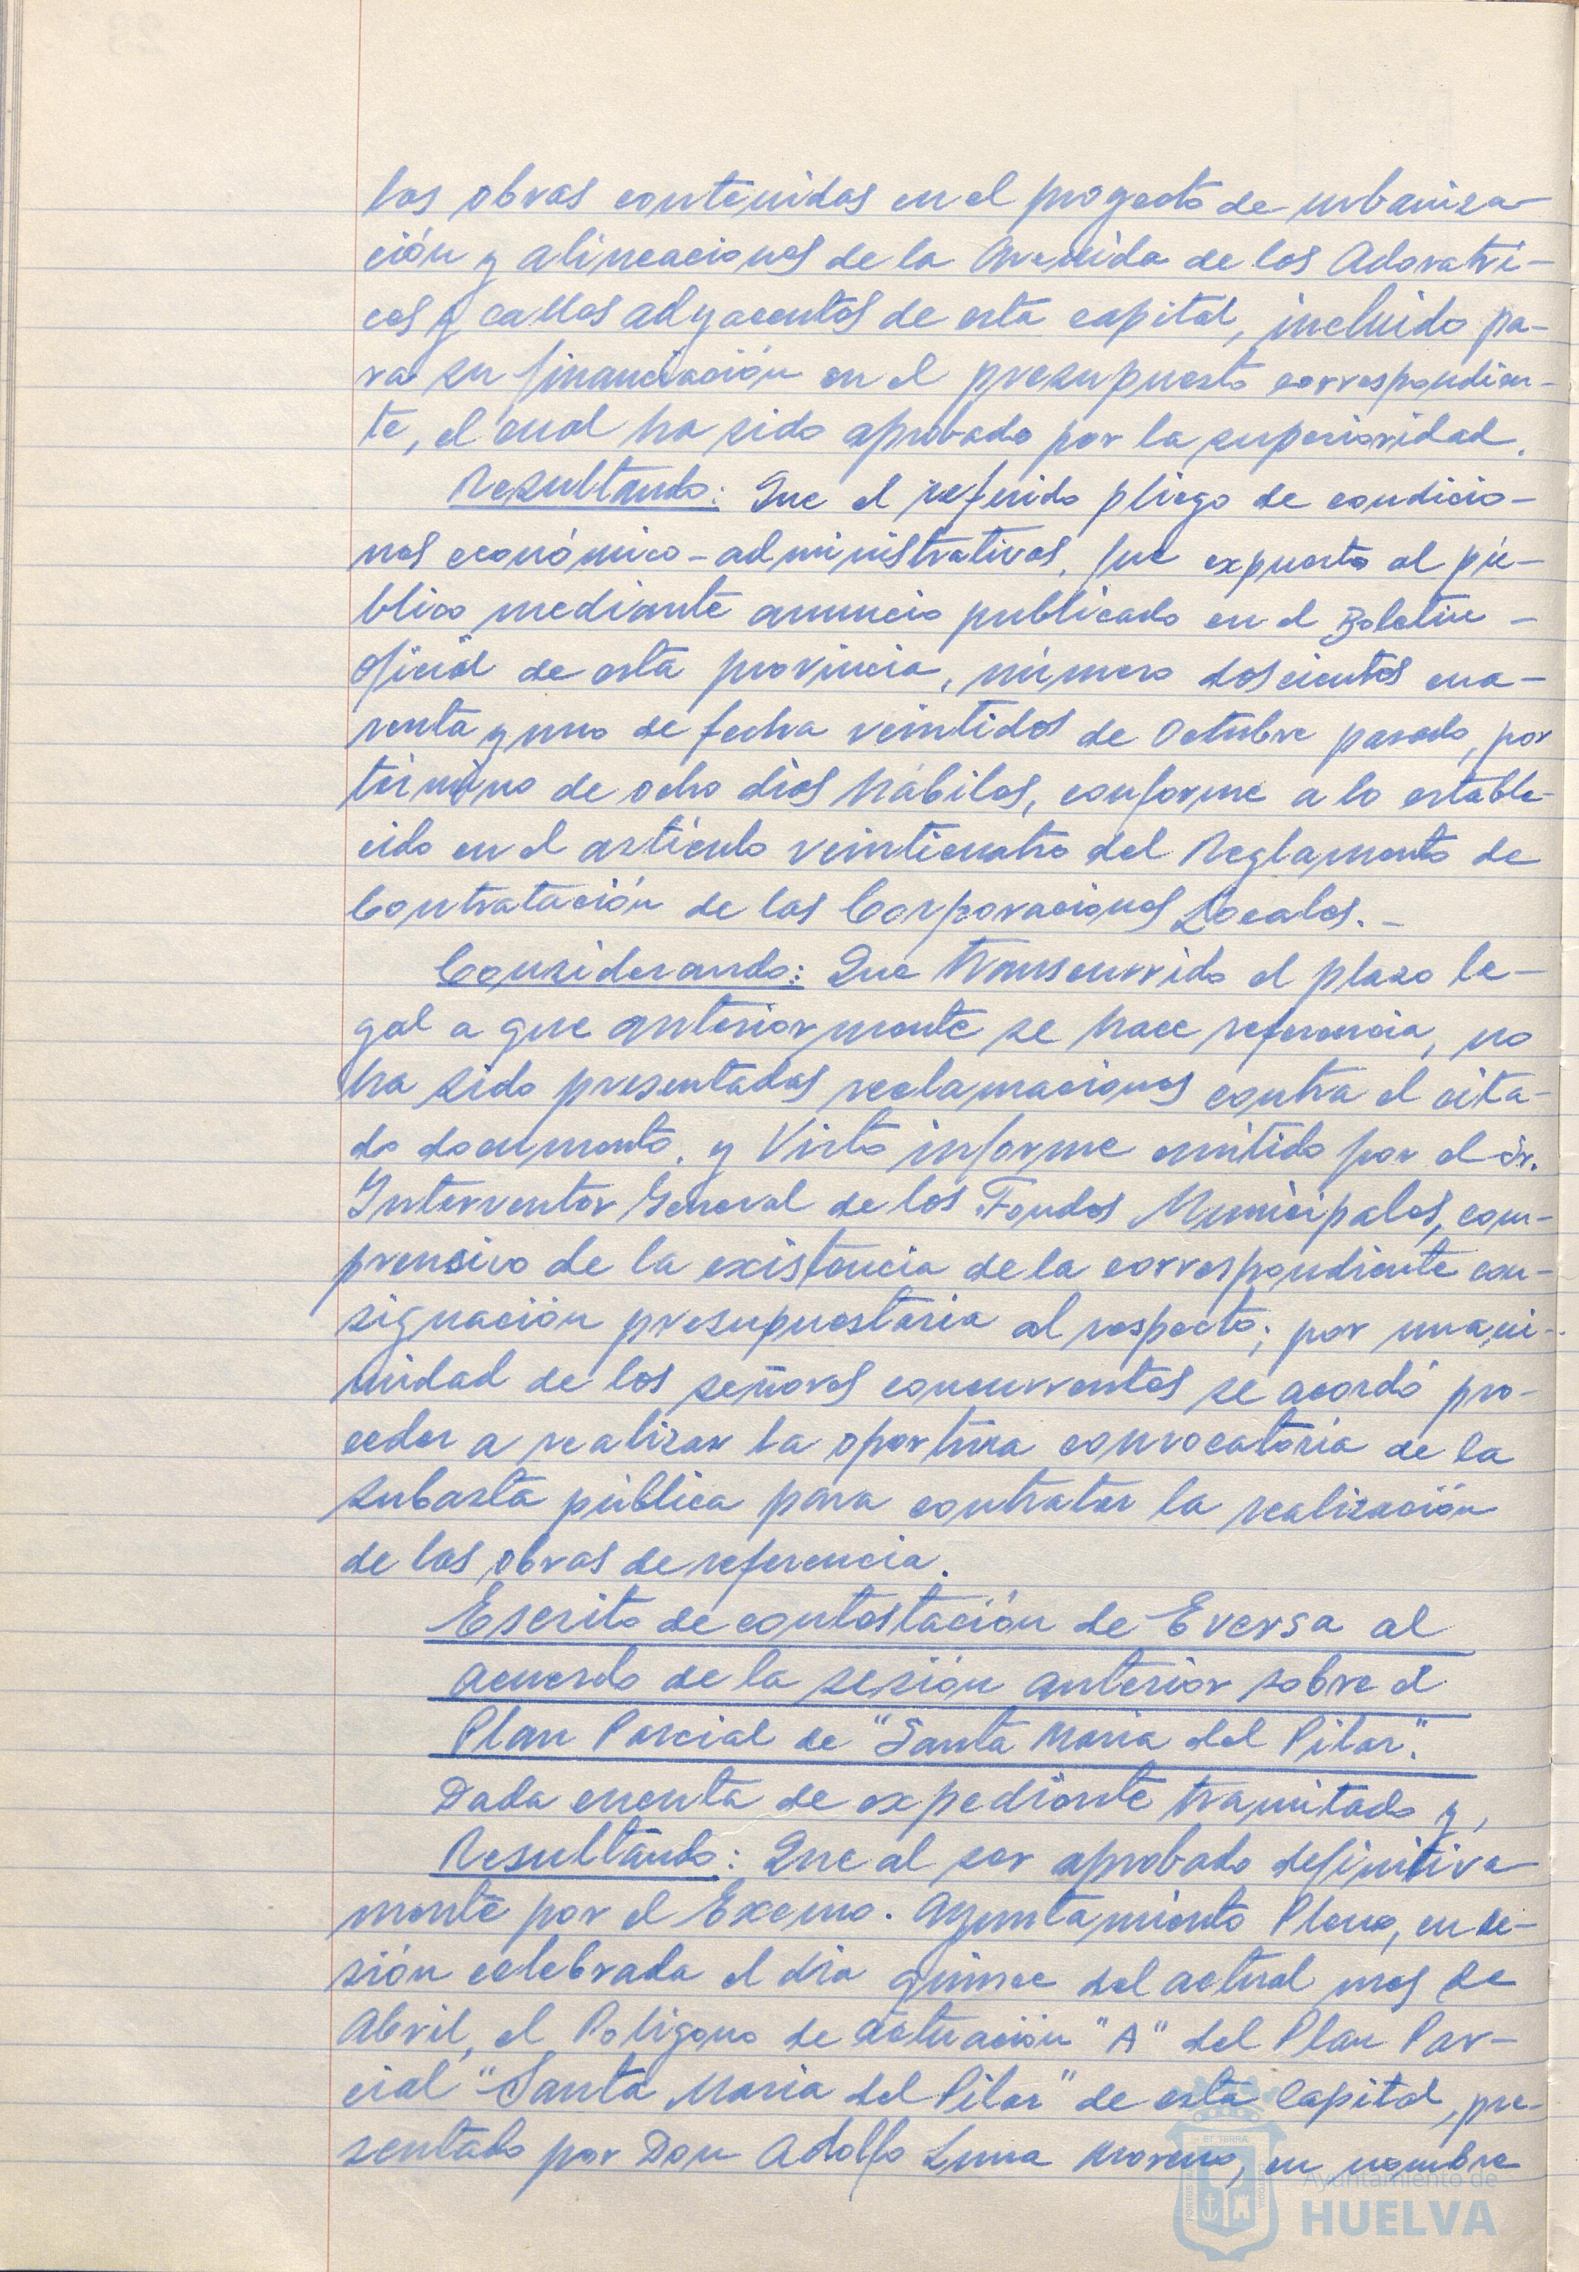 las obras contenidas en el proyecto de urbaniza-
ción y alineaciones de la Avenida de las Adoratri-
ces y calles adyacentes de esta capital, incluido pa-
ra su financiación en el presupuesto correspondien-
te, el cual ha sido aprobado por la superioridad.
Resultando: Que el referido pliego de condicio-
nes económico-administrativas, fue expuesto al pú-
blico mediante anuncio publicado en el Boletín -
Oficial de esta provincia, número doscientos cua-
renta y uno de fecha veintidos de Octubre pasado, por
término de ocho días hábiles, conforme a lo estable-
cido en el artículo veinticuatro del Reglamento de
Contratación de las Corporaciones Locales.-
Considerando: Que transcurrido el plazo le-
gal a que anteriormente se hace referencia, no
ha sido presentadas reclamaciones contra el cita-
do documento, y Visto informe emitido por el Sr.
Interventor General de los Fondos Municipales, com-
prensivo de la existencia de la correspondiente con-
signación presupuestaria al respecto; por unani-
midad de los señores concurrentes se acordó pro-
ceder a realizar la oportuna convocatoria de la
subasta pública para contratar la realización
de las obras de referencia.
Escrito de contestación de Eversa al
acuerdo de la sesión anterior sobre el
Plan Parcial de "Santa Maria del Pilar".
Dada cuenta de expediente tramitado y,
Resultando: Que al ser aprobado definitiva-
mente por el Excmo. Ayuntamiento Pleno, en se-
sión celebrada el día quince del actual mes de
Abril, el Poligono de actuación "A" del Plan Par-
cial "Santa Maria del Pilar" de esta Capital, pre-
sentado por Don Adolfo Luna Moreno, en nombre
Ayuntamiento de
HUELVA